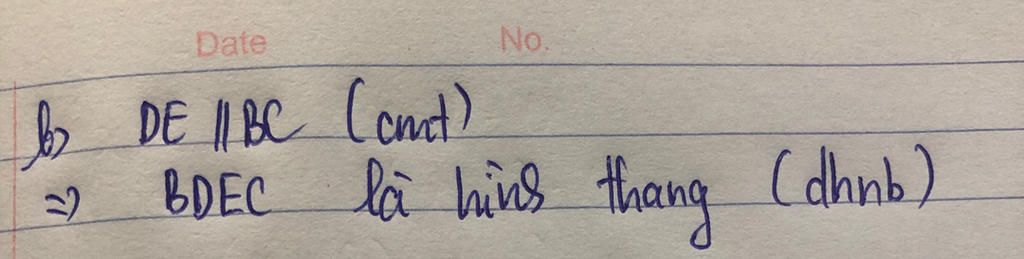 Date No.
b) DE // BC (cmt)
=) BDEC là hình thang (dhnb)